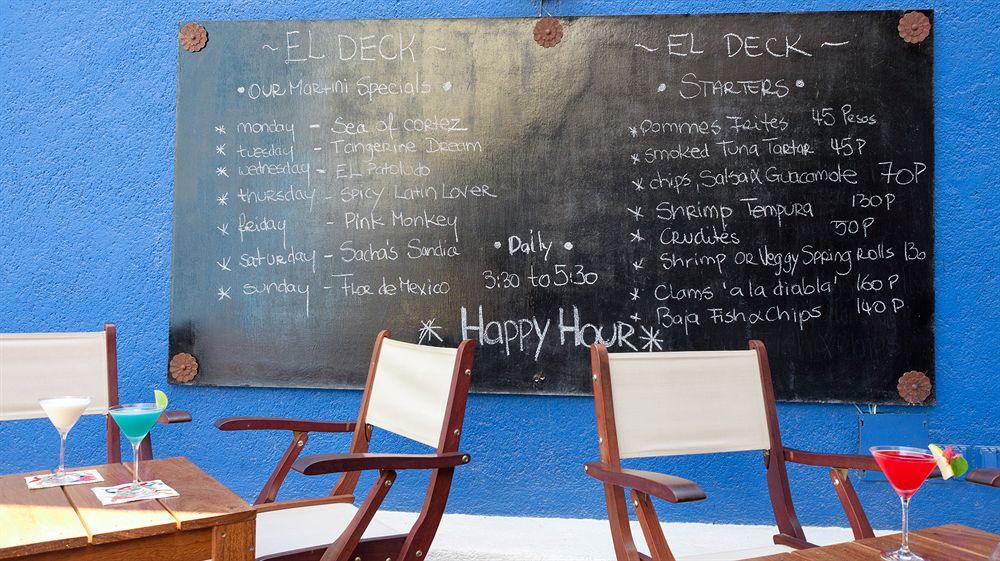 ~ EL DECK ~
• OUR Martini Specials •
* monday - Sea of cortez
* tuesday - Tangerine Dream
* wednesday - EL Patoludo
* thursday - Spicy Latin Lover
* friday - Pink Monkey
* saturday - Sacha's Sandia
* sunday - Flor de Mexico
• Daily •
3:30 to 5:30
* Happy Hour *
~ EL DECK ~
• STARTERS •
* Pommes Frites 45 Pesos
* smoked Tuna Tartar 45P
* chips, Salsa & Guacamole 70P
* Shrimp Tempura 130P
* Crudités 50P
* Shrimp OR Veggy Spring rolls 130
* Clams 'a la diabla' 160 P
* Baja Fish & Chips 140 P